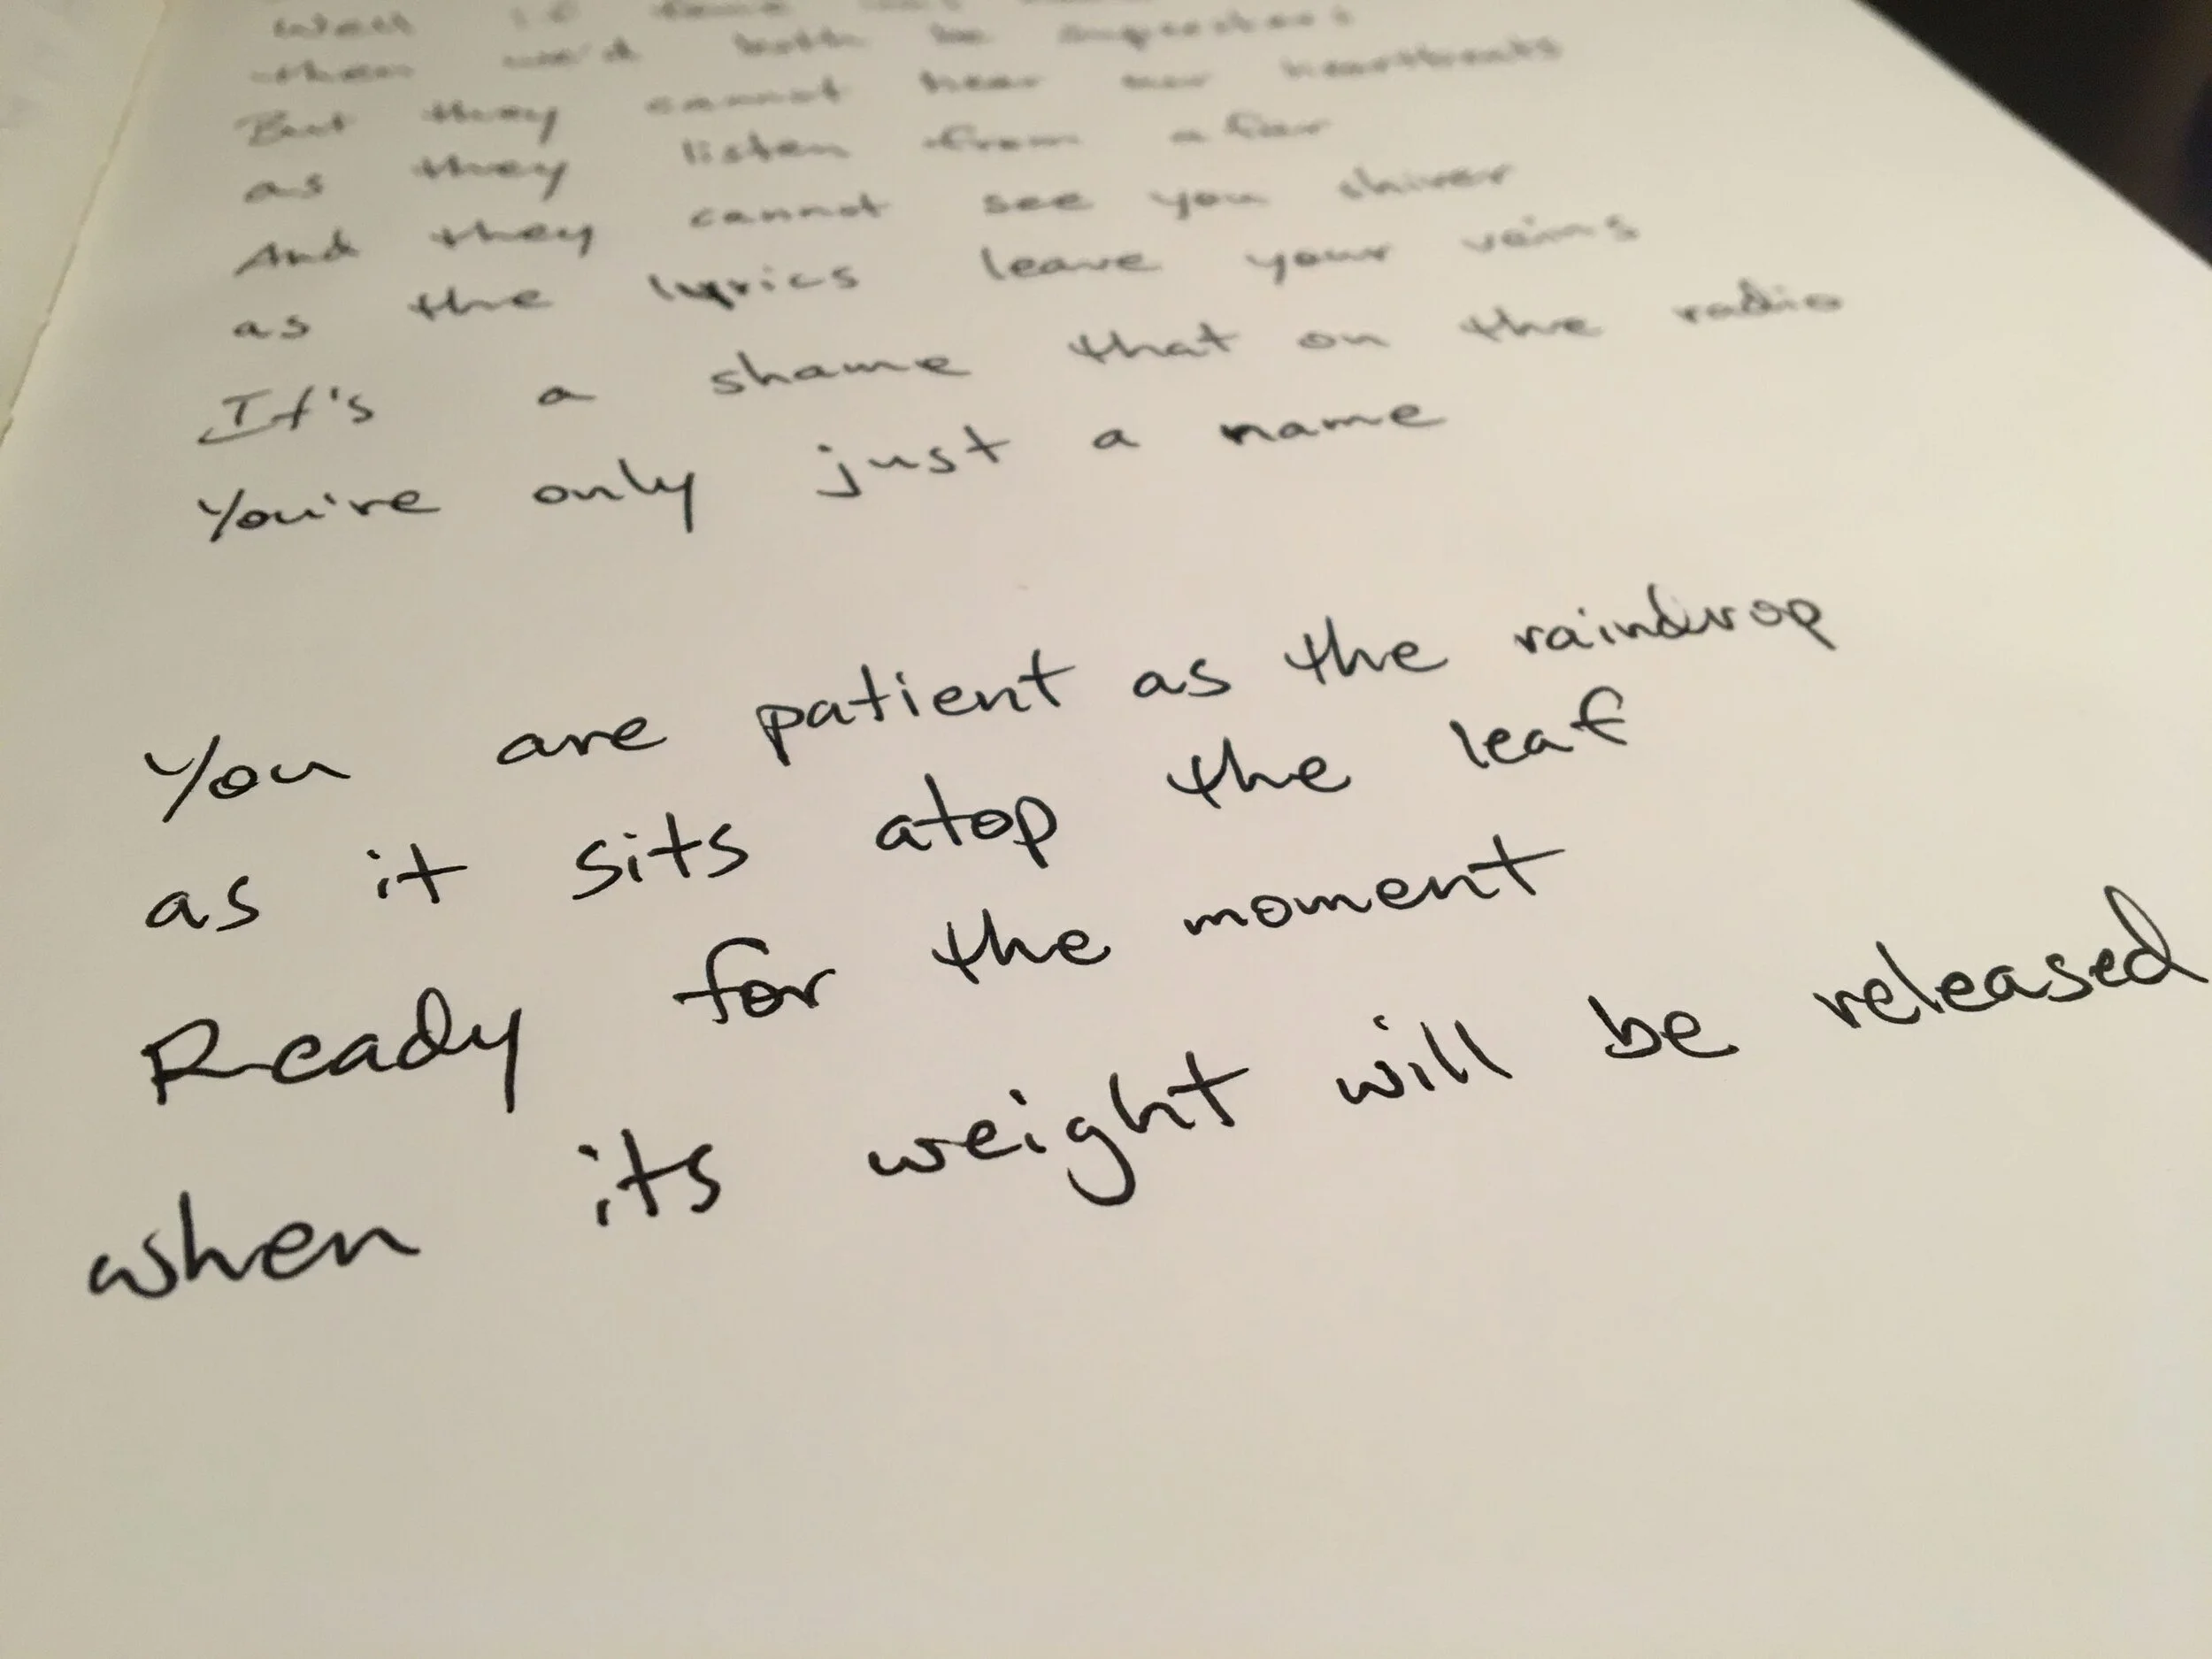 Well if fame
then we'd both be superstars
But they cannot hear our heartbeats
as they listen from afar
And they cannot see you shiver
as the lyrics leave your veins
It's a shame that on the radio
You're only just a name
You are patient as the raindrop
as it sits atop the leaf
Ready for the moment
when its weight will be released